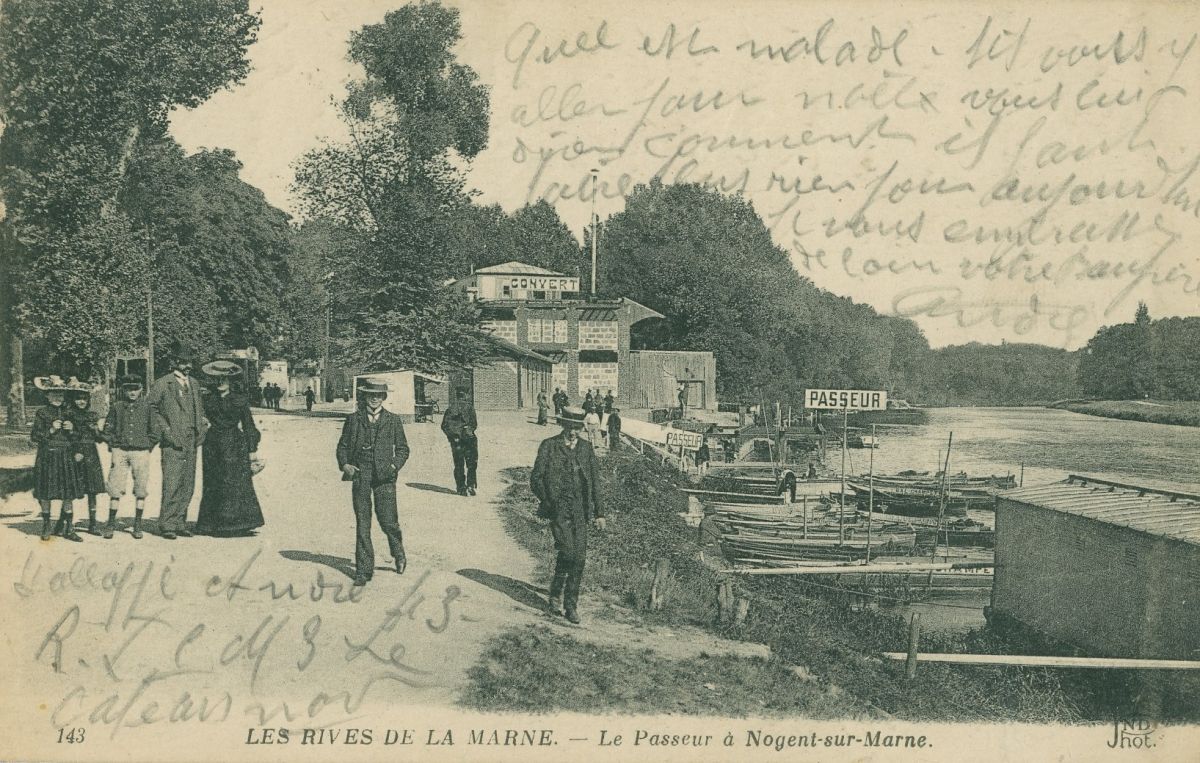 Quel est malade. Sit vous y
aller pour
comment il faut
rien pour aujourd'hui
Je vous embrasse
de loin votre
André
CONVERT
PASSEUR
PASSEUR
André 43.
R. I. C M 3 Le
Cateau nord
143 LES RIVES DE LA MARNE. — Le Passeur à Nogent-sur-Marne.
ND Phot.